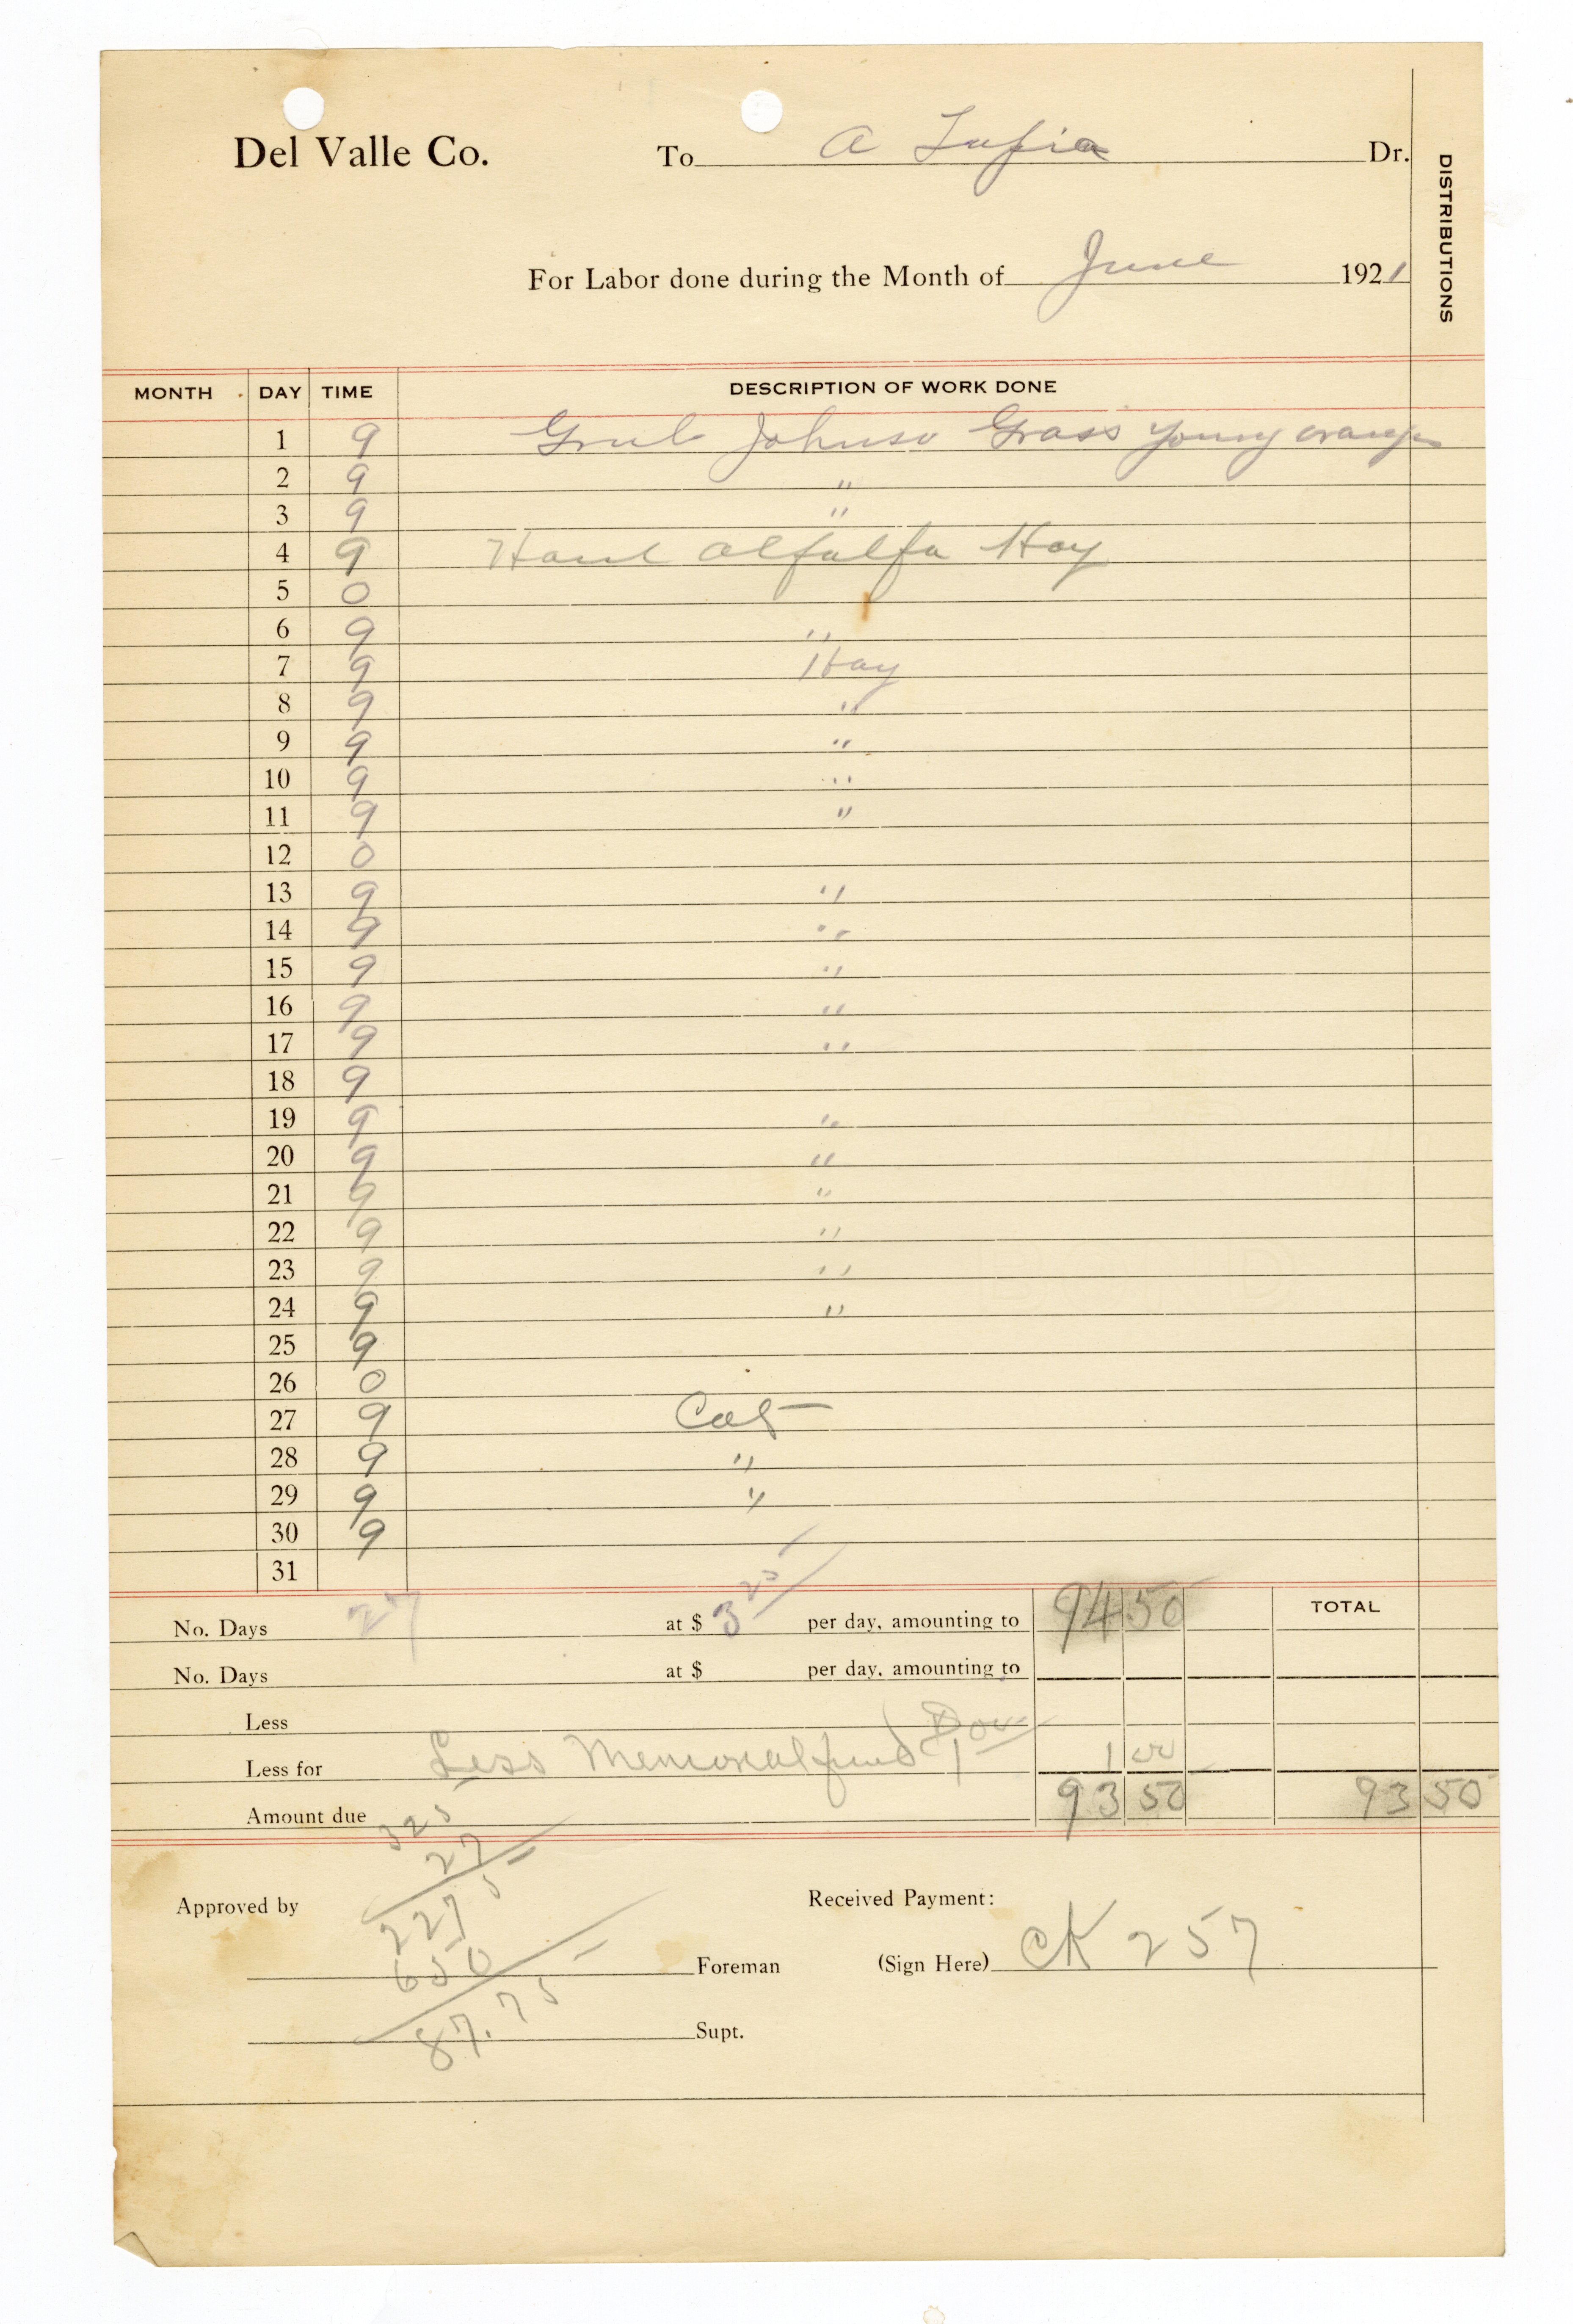 Del Valle Co. To A Lafia Dr.
DISTRIBUTIONS
For Labor done during the Month of June 1921
MONTH DAY TIME DESCRIPTION OF WORK DONE
1 9 Grub Johnso Grass young oranges
2 9 "
3 9 "
4 9 Haul alfalfa Hay
5 0
6 9 "
7 9 Hay
8 9 "
9 9 "
10 9 "
11 9 "
12 0
13 9 "
14 9 "
15 9 "
16 9 "
17 9 "
18 9
19 9 "
20 9 "
21 9 "
22 9 "
23 9 "
24 9 "
25 9
26 0
27 9
28 9 "
29 9 "
30 9
31
No. Days 27 at $ 3 25 per day, amounting to 94 50 TOTAL
No. Days at $ per day, amounting to
Less
Less for Less Memorial fund $1 00 1 00
Amount due 93 50 93 50
325
27
2275
650
87.75
Approved by Received Payment:
Foreman (Sign Here) CK 257
Supt.